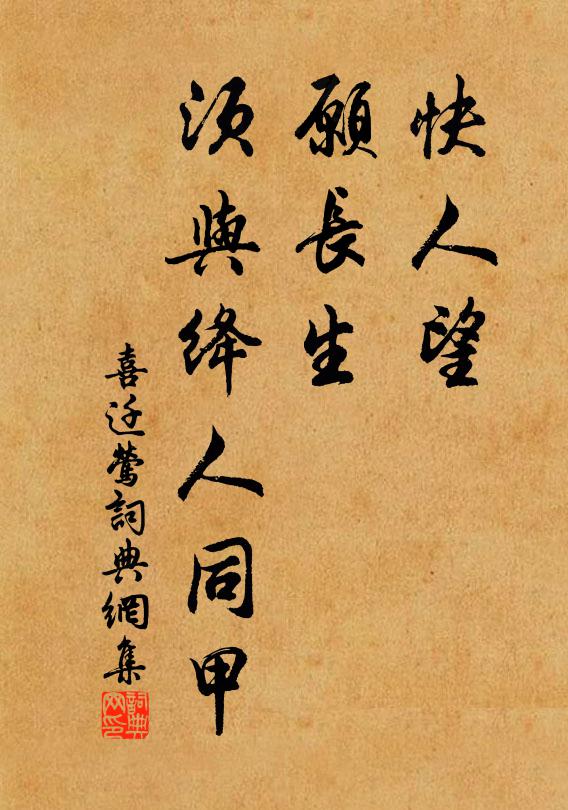 快人望
願長生
須與絳人同甲
喜迁鶯詞典網集
詞典
网印